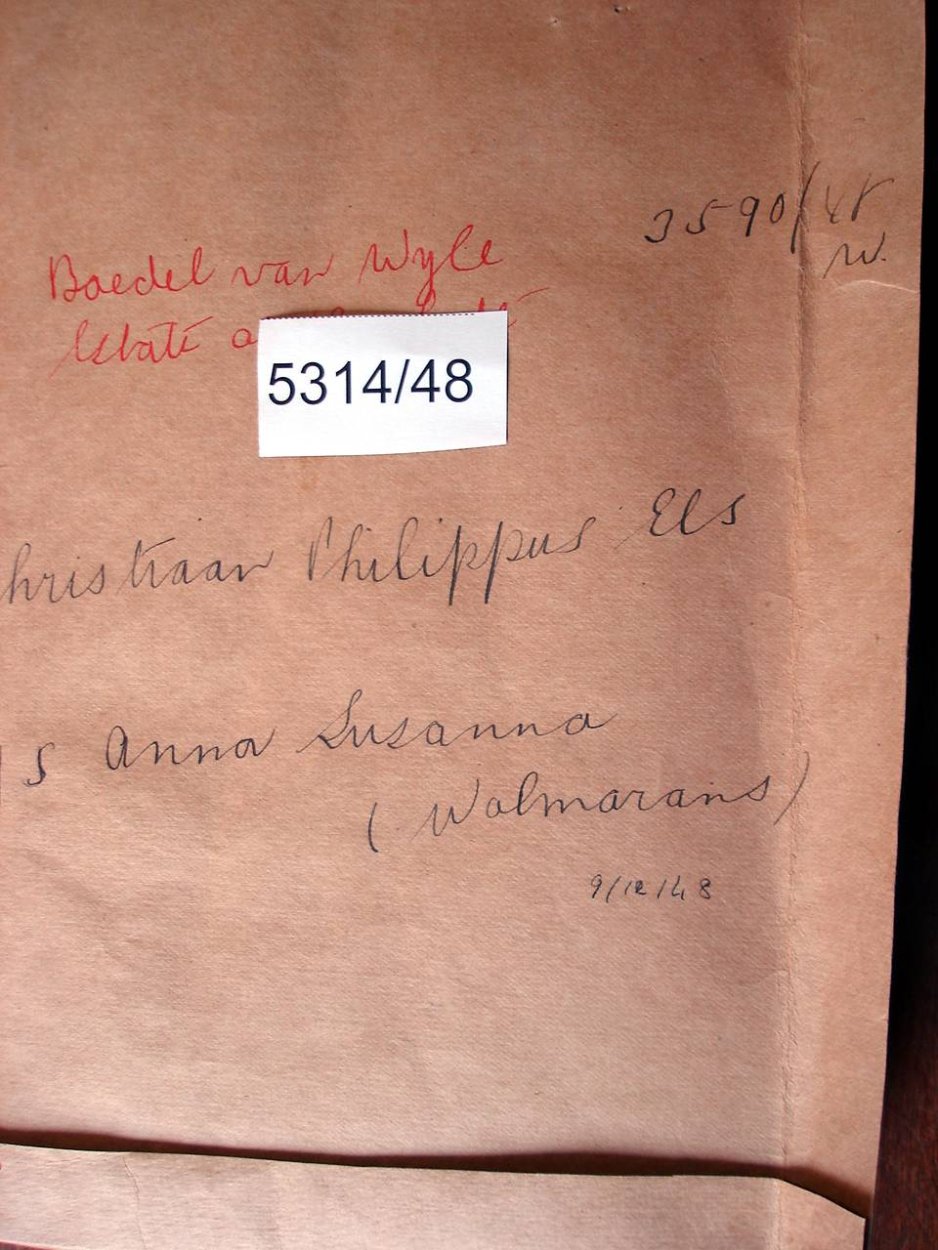 3590/48
W.
Boedel van Wyle
Estate
5314/48
hristiaan Philippus Els
s Anna Susanna
(Wolmarans)
9/12/48